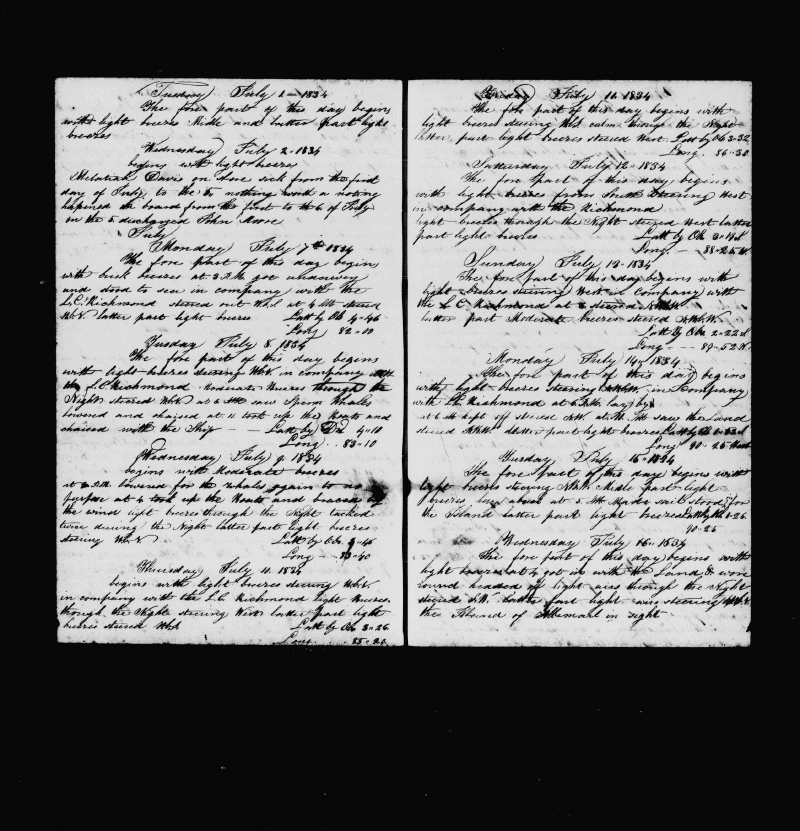 Tuesday July 1 - 1834
The fore part of this day begins
with light breezes Midle and Latter part light
breezes
Wednesday July 2 - 1834
begins with light breezes
Davis on shore sick from the first
day of July to the 5 nothing noting
hapined on board from the first to the 6 of July
on the 5 discharged John
July
Monday July 7th 1834
The fore part of this day begins
with brisk breezes at 3 P.M. got underway
and stood to sea in company with the
L.C. Richmond steared out at 4 steared
latter part light breezes Latt by Ob 4-46
Long 82-00
Tusday July 8. 1834
The fore part of this day begins
with light breezes steering in company with
the L.C Richmond Moderate Breezes through the
Night steared at 6 AM saw Sperm Whales
lowered and chaised at 11 took up the Boats and
chaised with the Ship - - Latt by 4-10
Long - 83-10
Wednesday July 9. 1834
begins with Moderate breezes
at 2 P.M. lowered for the whales again to no
purpose at 4 took up the Boats and braced by
the wind light breezes through the Night tacked
twice during the Night latter part light breezes
stering Latt by Ob -45
Long - 83-40
Thursday July 10. 1834
begins with light breezes steering
in company with the L.C Richmond light Breezes
through the Night stering West latter part light
breezes steared Latt by Ob 3-26
Long. - 85-20
Friday July 11. 1834
The fore part of this day begins with
light breezes steering calm through the Night
latter part light breezes steared West Latt by Ob 3-32
Long. 86-30
Saturday July 12 - 1834
The fore part of this day begins
with light breezes from South Stearing West
in company with the Richmond
light breezes through the Night steared West latter
part light breezes Latt by Ob
Long. - 88-25 W
Sunday July 13 - 1834
The fore part of this day begins with
light breezes steering West in Company with
the L.C Richmond at steared
latter part Moderate breezes steared
Latt by Obs 2-22
Long - - 89-52
Monday July 14 - 1834
The fore part of this day begins
with light breezes steering in Company
with L.C Richmond at 6 P.M. lay by
at 6 AM kept off steared saw the Land
steared latter part light breezes Latt by
Long 90-25 West
Tusday July 15 - 1834
The fore part of this day begins with
light breezes steering Midle part light
breezes at 5 AM Made sail stood for
the Island latter part light breezes Latt by Ob -26
90-25
Wednesday July 16 - 1834
The fore part of this day begins with
light breezes at 4 got in with the Land & wore
round headed of light airs through the Night
steared Latter part light airs steering
the Island of Albemarl in sight